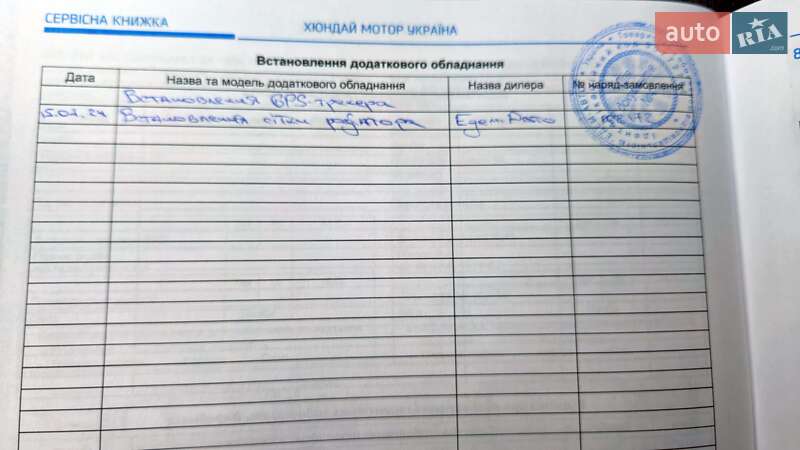 СЕРВІСНА КНИЖКА
ХЮНДАЙ МОТОР УКРАЇНА
auto RIA.com
8
Встановлення додаткового обладнання
Дата Назва та модель додаткового обладнання Назва дилера № наряд-замовлення
Встановлення GPS-трекера
15.02.24 Встановлення сітки радіатора